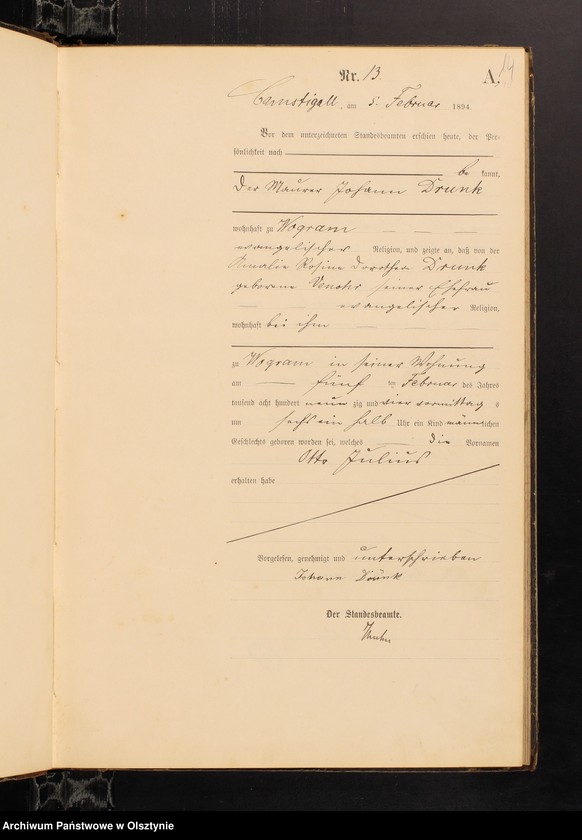 14
Nr. 13.
A.
Camstigall, am 5. Februar 1894.
Vor dem unterzeichneten Standesbeamten erschien heute, der Per-
sönlichkeit nach
be kannt,
der Maurer Johann Drunk
wohnhaft zu Wogram
evangelischer Religion, und zeigte an, daß von der
Amalie Rosine Dorothea Drunk
geborene seiner Ehefrau
evangelischer Religion,
wohnhaft bei ihm
zu Wogram in seiner Wohnung
am fünf ten Februar des Jahres
tausend acht hundert neun zig und vier vormittag s
um sechs ein halb Uhr ein Kind männlichen
Geschlechts geboren worden sei, welches die Vornamen
Otto Julius
erhalten habe
Vorgelesen, genehmigt und unterschrieben
Johann Drunk
Der Standesbeamte.
Archiwum Państwowe w Olsztynie